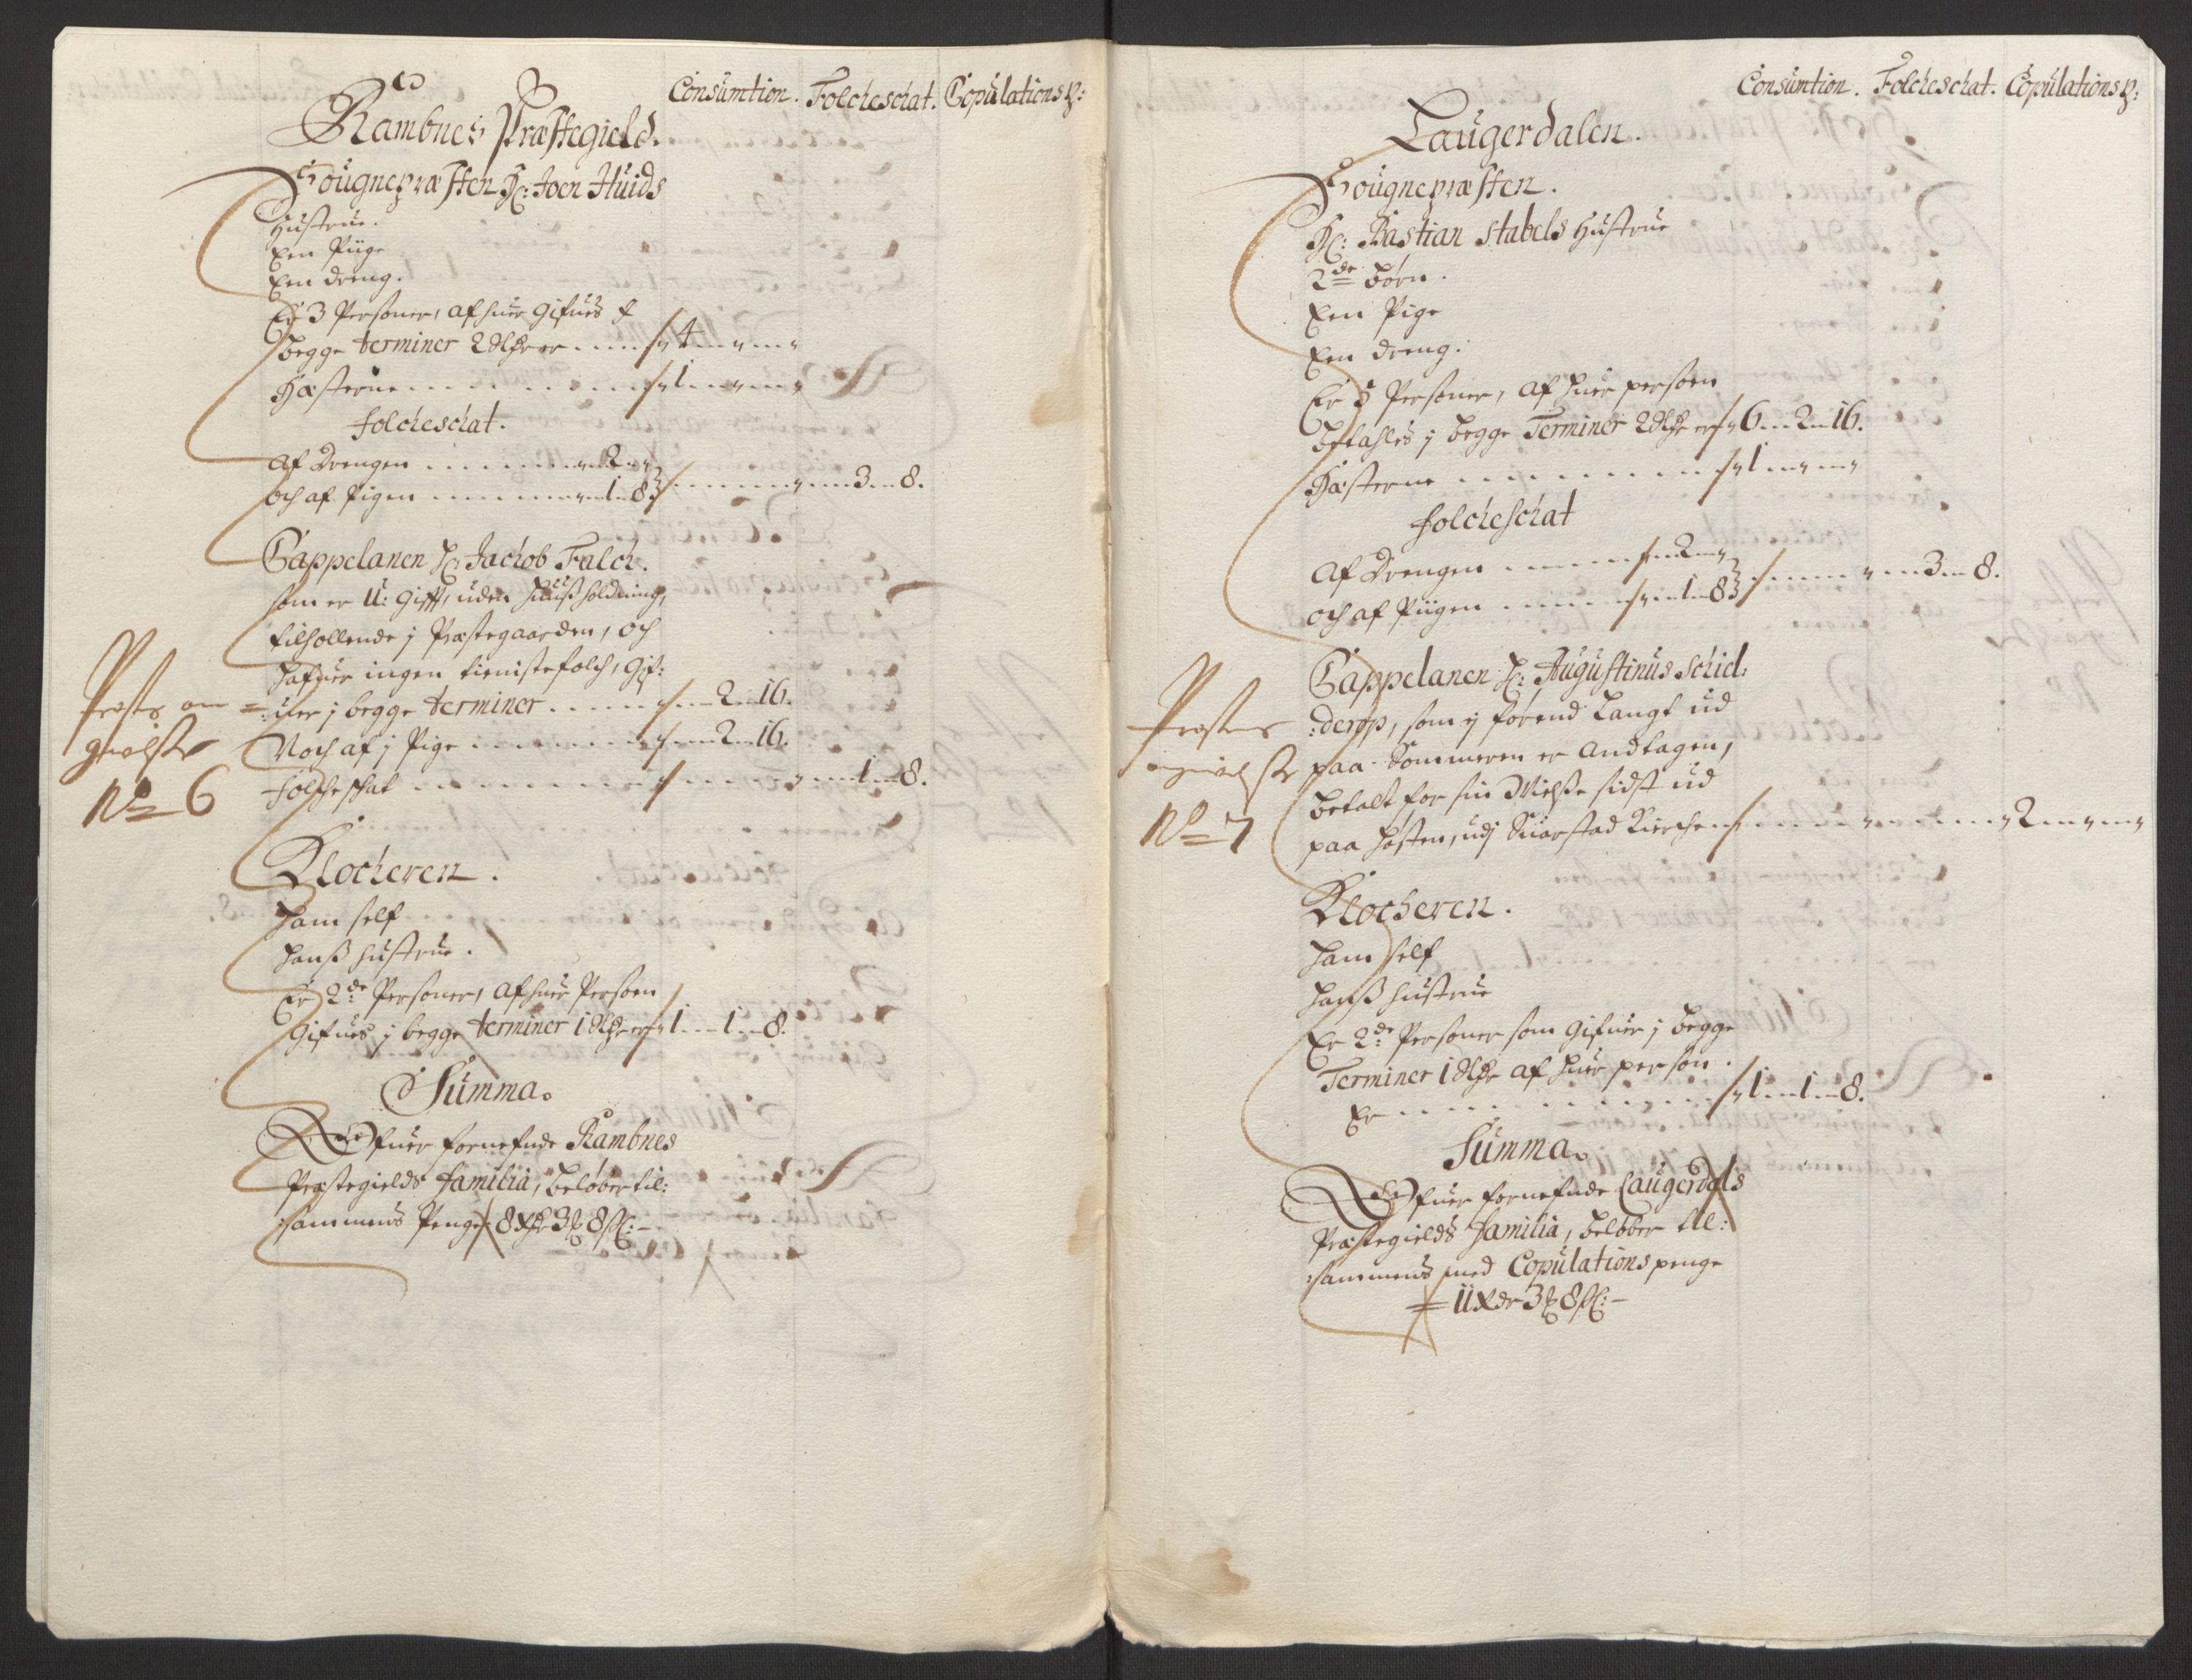 Consumtion. Folcheschat. Copulations p:
Rambnes Præstegield.
Sougnepræsten H: Joen Huids
Hustrue.
Een Piige
Een dreng.
Er 3 Personer, af huer gifues j
begge terminer 2 Rdr er . . . . 4 " "
Hæsterne . . . . . . . . 1 " "
Folcheschat.
Af Drengen . . . . . . . 2 "
och af Pigen . . . . . . . 1 8 . . . . . . 3 8.
Cappelanen H: Jachob Falch.
som er U: gifft, uden huußholdning,
tilhollende j Præstegaarden, och
hafuer ingen tienistefolch, gif:
:uer j begge terminer . . . . . 2 16.
Noch af j Pige . . . . . . . 2 16.
Folcheschat . . . . . . . . . . . . 1 8.
Præstens an
gifvelsse
No 6
Klocheren.
Ham self
Hanß hustrue.
Er 2de Personer, af huer Persoen
Gifues j begge terminer 1 Rdr er 1 1 8.
Summa.
Ofuer forne­fnde Rambnes
Præstegields Familia, beløber til:
:sammens Penge 8 Rdr 3 ß 8 sk: –
Consumtion. Folcheschat. Copulations p:
Laugerdalen.
Sougnepræsten.
H: Bastian Stabels Hustrue
2de børn.
Een Pige
Een dreng.
Er 5 Personer, af huer persoen
betahles j begge Terminer 2 Rdr er 6 2 16.
Hæsterne . . . . . . . . 1 " "
Folcheschat
Af Drengen . . . . . . 2 "
och af Piigen . . . . . . 1 8 . . . . . . 3 8.
Cappelanen H: Augustinus Schiel:
:derop, som ej førend Langt ud
paa Sommeren er Andtagen,
betalt for sin Vielsse sidst ud
paa høsten, udj Suarstad Kierche . . . . . . . 2 " "
Præstens
angivelsse
No 7
Klocheren.
Ham self
Hanß hustrue
Er 2de Personer som gifuer j begge
Terminer 1 Rdr af huer person.
Er . . . . . . . . . . . 1 1 8.
Summa.
Ofuer fornefnde Laugerdals
Præstegields Familia, beløber til:
:sammens med Copulations penge
11 Rdr 3 ß 8 sk: –